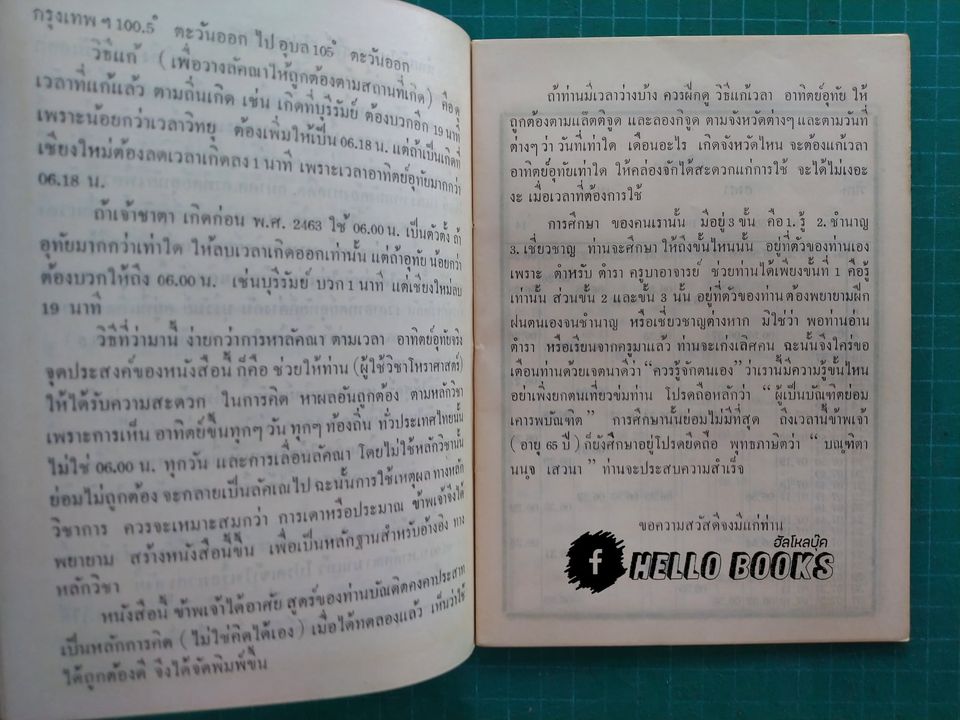 กรุงเทพ ฯ 100.5° ตะวันออก ไป อุบล 105° ตะวันออก
วิธีแก้ (เพื่อวางลัคณาให้ถูกต้องตามสถานที่เกิด) คือดู
เวลาที่แก้แล้ว ตามถิ่นเกิด เช่น เกิดที่บุรีรัมย์ ต้องบวกอีก 19 นาที
เพราะน้อยกว่าเวลาวิทยุ ต้องเพิ่มให้เป็น 06.18 น. แต่ถ้าเป็นเกิดที่
เชียงใหม่ต้องลดเวลาเกิดลง 1 นาที เพราะเวลาอาทิตย์อุทัยมากกว่า
06.18 น.
ถ้าเจ้าชาตา เกิดก่อน พ.ศ. 2463 ใช้ 06.00 น. เป็นตัวตั้ง ถ้า
อุทัยมากกว่าเท่าใด ให้ลบเวลาเกิดออกเท่านั้น แต่ถ้าอุทัย น้อยกว่า
ต้องบวกให้ถึง 06.00 น. เช่นบุรีรัมย์ บวก 1 นาที แต่เชียงใหม่ลบ
19 นาที
วิธีที่ว่ามานี้ ง่ายกว่าการหาลัคณา ตามเวลา อาทิตย์อุทัยจริง
จุดประสงค์ของหนังสือนี้ ก็คือ ช่วยให้ท่าน (ผู้ใช้วิชาโหราศาสตร์)
ให้ได้รับความสะดวก ในการคิด หาผลอันถูกต้อง ตามหลักวิชา
เพราะการเห็น อาทิตย์ขึ้นทุกๆ วัน ทุกๆ ท้องถิ่น ทั่วประเทศไทยนั้น
ไม่ใช่ 06.00 น. ทุกวัน และการเลื่อนลัคณา โดยไม่ใช้หลักวิชานั้น
ย่อมไม่ถูกต้อง จะกลายเป็นลัคเณไป ฉะนั้นการใช้เหตุผล ทางหลัก
วิชาการ ควรจะเหมาะสมกว่า การเดาหรือประมาณ ข้าพเจ้าจึงได้
พยายาม สร้างหนังสือนี้ขึ้น เพื่อเป็นหลักฐานสำหรับอ้างอิง ทาง
หลักวิชา
หนังสือนี้ ข้าพเจ้าได้อาศัย สูตร์ของท่านบัณดิตคงคาประสาท
เป็นหลักการคิด ( ไม่ใช่คิดได้เอง ) เมื่อได้ทดลองแล้ว เห็นว่าใช้
ได้ถูกต้องดี จึงได้จัดพิมพ์ขึ้น
ถ้าท่านมีเวลาว่างบ้าง ควรฝึกดู วิธีแก้เวลา อาทิตย์อุทัย ให้
ถูกต้องตามแล๊ตติจูด และลองกิจูด ตามจังหวัดต่างๆ และตามวันที่
ต่างๆ ว่า วันที่เท่าใด เดือนอะไร เกิดจังหวัดไหน จะต้องแก้เวลา
อาทิตย์อุทัยเท่าใด ให้คล่องจักได้สะดวกแก่การใช้ จะได้ไม่เงอะ
งะ เมื่อเวลาที่ต้องการใช้
การศึกษา ของคนเรานั้น มีอยู่ 3 ขั้น คือ 1. รู้ 2. ชำนาญ
3. เชี่ยวชาญ ท่านจะศึกษา ให้ถึงขั้นไหนนั้น อยู่ที่ตัวของท่านเอง
เพราะ ตำหรับ ตำรา ครูบาอาจารย์ ช่วยท่านได้เพียงขั้นที่ 1 คือรู้
เท่านั้น ส่วนขั้น 2 และขั้น 3 นั้น อยู่ที่ตัวของท่าน ต้องพยายามฝึก
ฝนตนเองจนชำนาญ หรือเชี่ยวชาญต่างหาก มิใช่ว่า พอท่านอ่าน
ตำรา หรือเรียนจากครูมาแล้ว ท่านจะเก่งเลิศคน ฉะนั้นจึงใคร่ขอ
เตือนท่านด้วยเจตนาดีว่า “ควรรู้จักตนเอง” ว่าเรานี้มีความรู้ขั้นไหน
อย่าเพิ่งยกตนเที่ยวข่มท่าน โปรดถือหลักว่า “ผู้เป็นบัณฑิตย่อม
เคารพบัณฑิต” การศึกษานั้นย่อมไม่มีที่สุด ถึงเวลานี้ข้าพเจ้า
( อายุ 65 ปี ) ก็ยังศึกษาอยู่โปรดยึดถือ พุทธภาษิตว่า “ บณฺฑิตา
นนฺจ เสวนา ” ท่านจะประสบความสำเร็จ
ขอความสวัสดีจงมีแก่ท่าน
ฮัลโหลบุ๊ค
f HELLO BOOKS